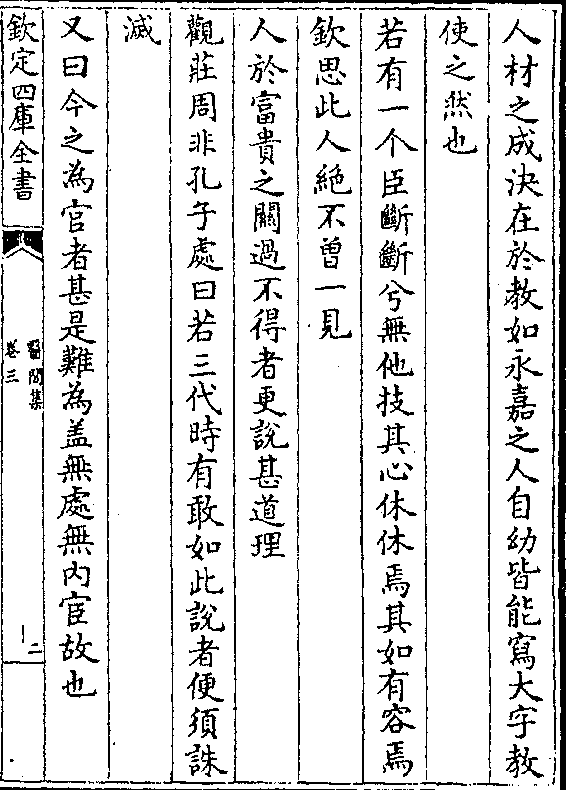 人材之成決在於教如永嘉之人自幼皆能寫大字教
使之然也
若有一个臣斷斷兮無他技其心休休焉其如有容焉
欽思此人絶不曾一見
人於富貴之關過不得者更說甚道理
觀莊周非孔子處曰若三代時有敢如此說者便須誅
滅
又曰今之為官者甚是難為盖無處無内宦故也
欽定四庫全書
醫閭集
卷三
二